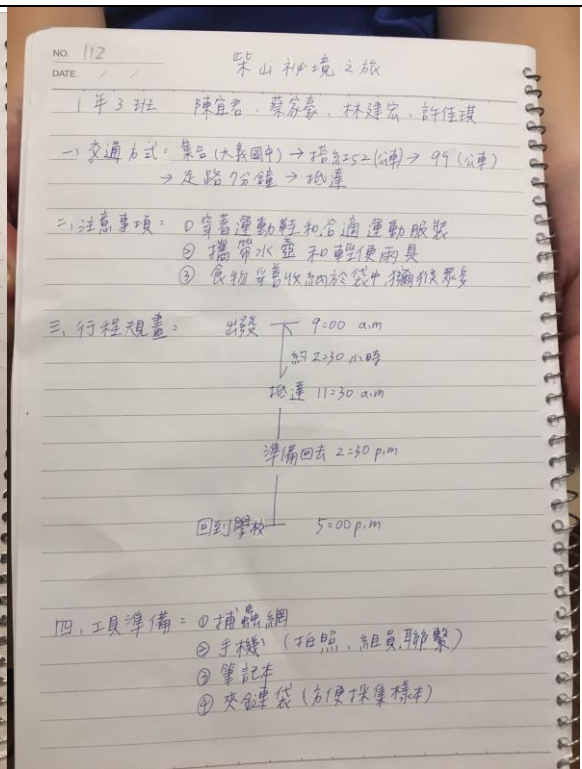 NO. 112
DATE / /
柴山祕境之旅
1年3班 陳宜君、蔡家豪、林建宏、許佳琪
一、交通方式：集合(大義國中)→搭紅52(公車)→99(公車)
→走路7分鐘→抵達
二、注意事項：①穿著運動鞋和合適運動服裝
②攜帶水壺和輕便雨具
③食物妥善收納於袋中,獼猴眾多
三、行程規畫：出發 9:00 a.m
約2:30小時
抵達 11:30 a.m
準備回去 2:30 p.m
回到學校 5:00 p.m
四、工具準備：①捕蟲網
②手機(拍照、組員聯繫)
③筆記本
④夾鏈袋(方便採集樣本)